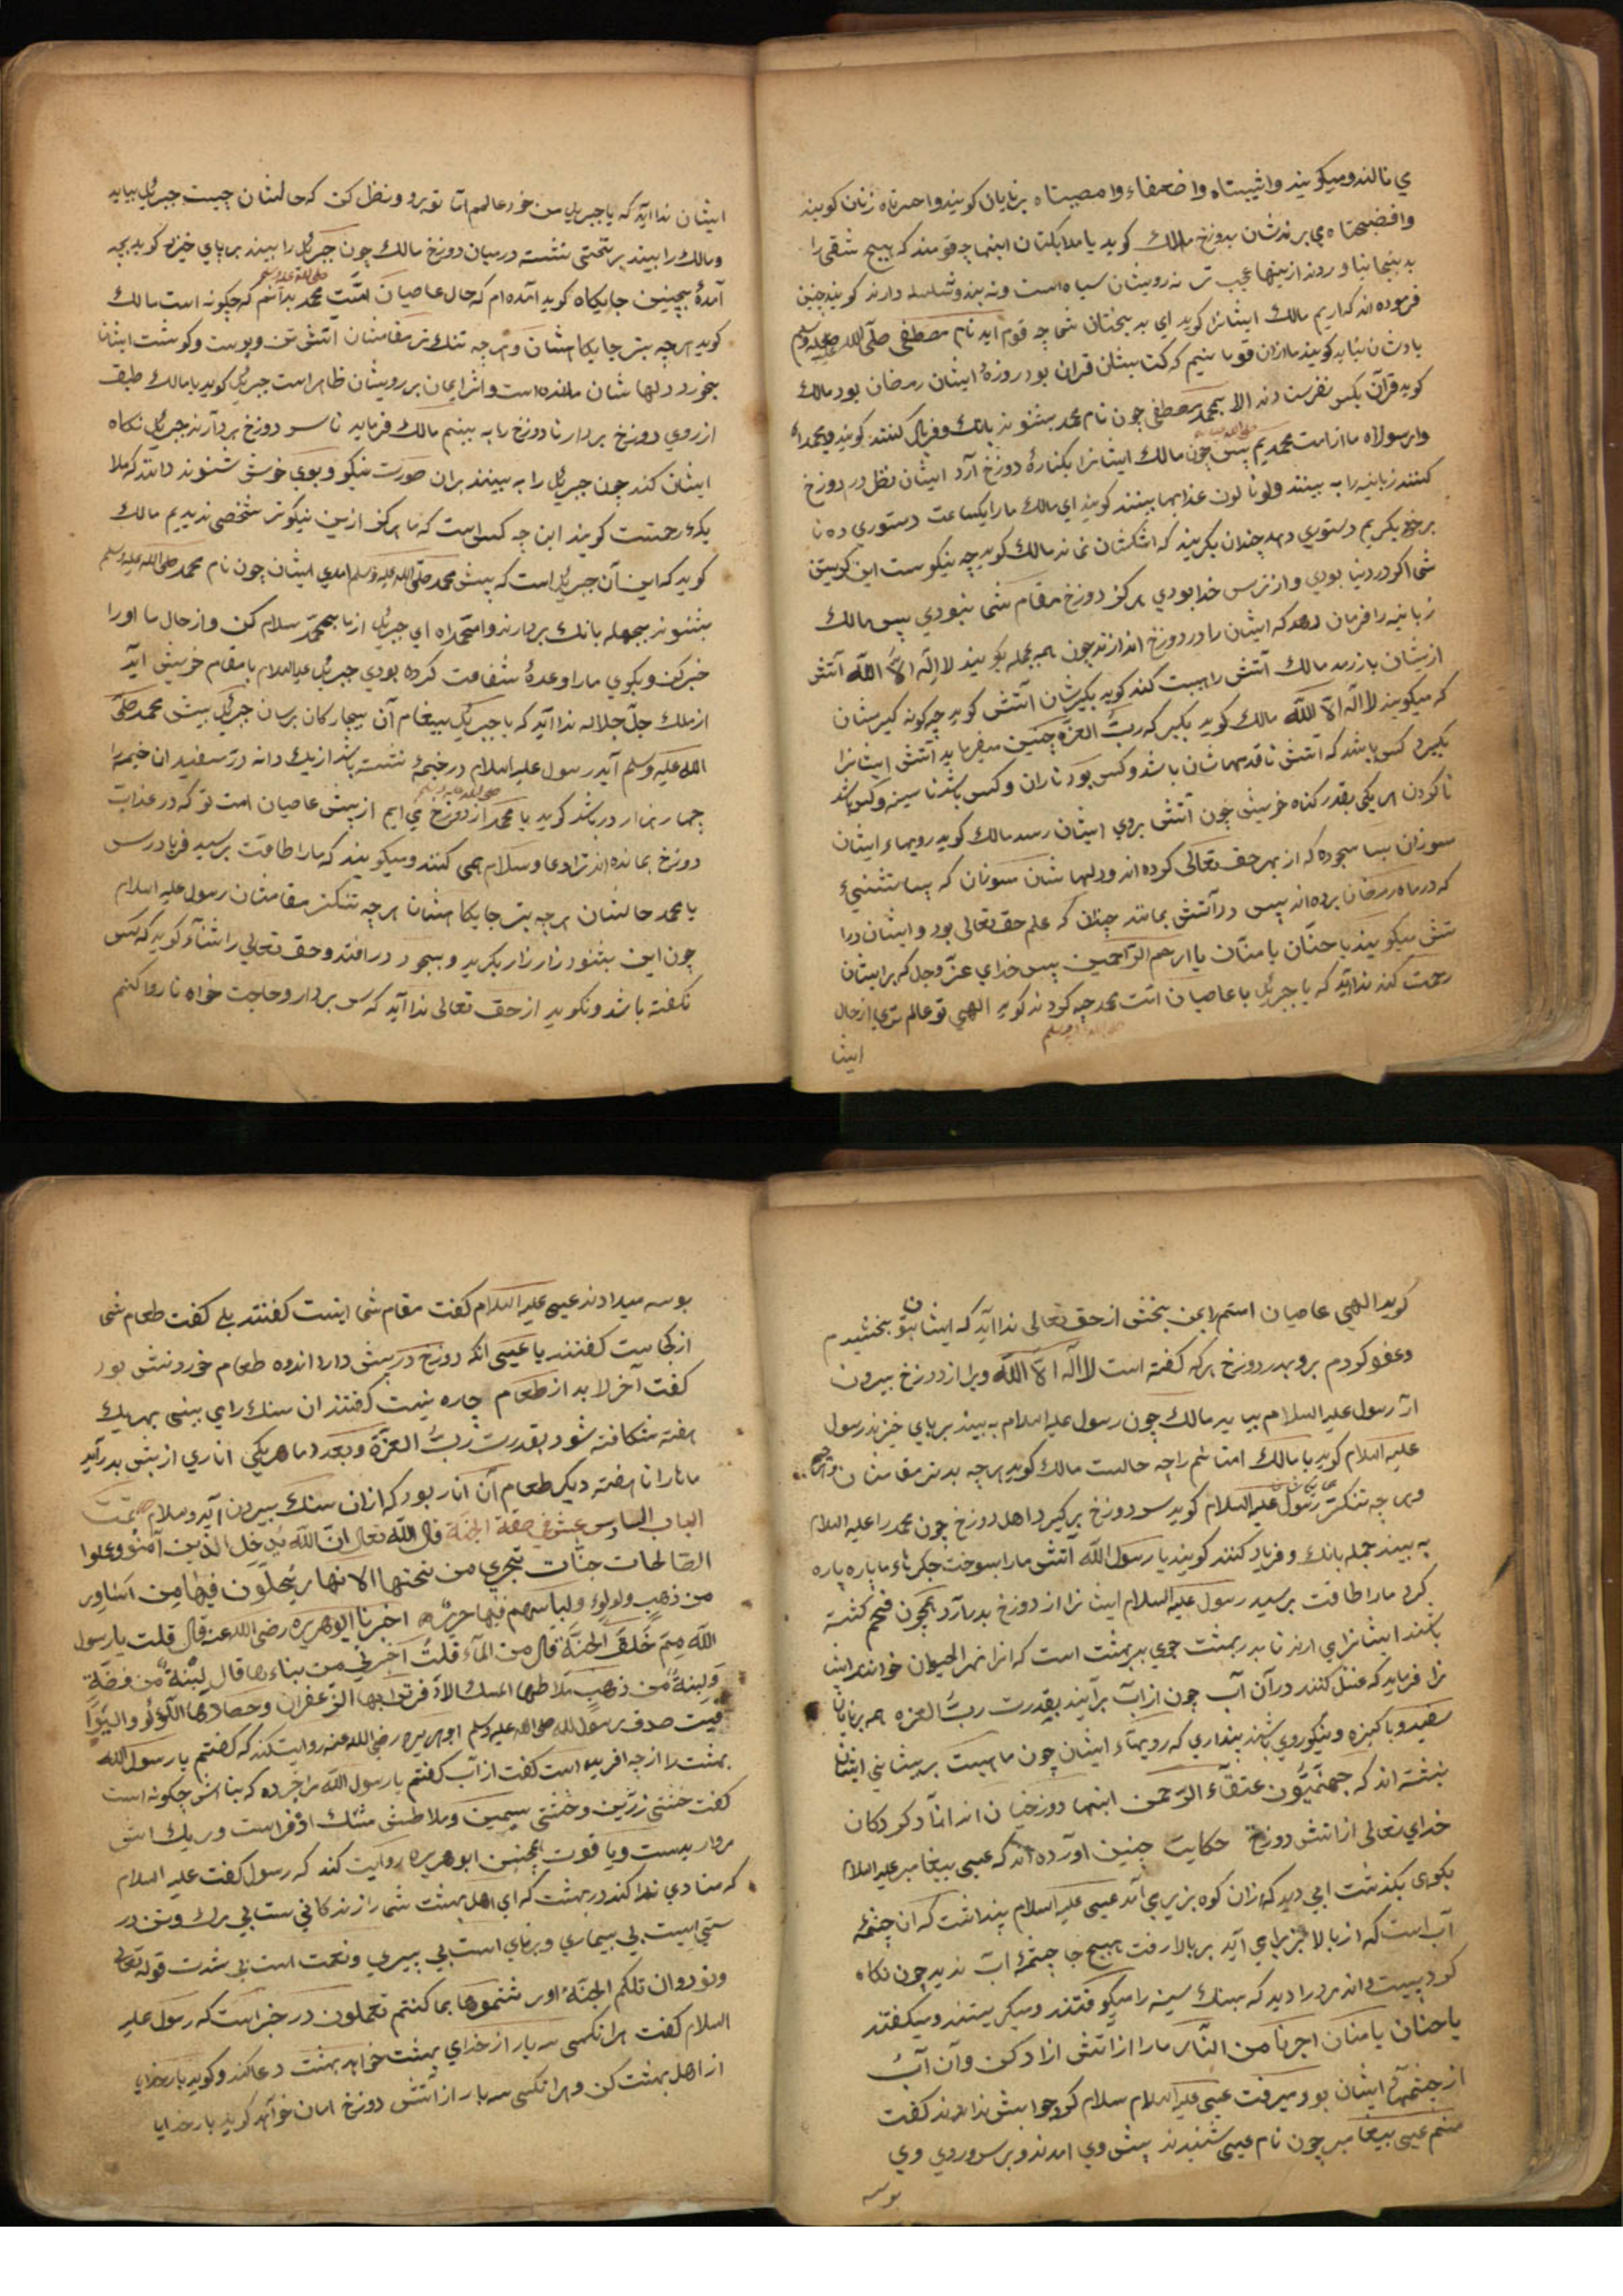 ي نالند و ميكويند واشيبتاه وا ضعفاء وامصيبتاه برنايان كويند واحسرتاه زنان كويند
وافضيحتاه مي برندشان بدوزخ مالك كويد يا ملايكتان اينها چه قومند كه هيچ شقى را
بدينجا نياوردند ازينها عجب تر نه رويشان سياه است ونه بند وسلسله دارند كويند چنين
فرموده اند كه اريم مالك ايشانرا كويد اي بدبختان شما چه قوم ايد نام مصطفى صلى الله عليه وسلم
يادشان نيايد كويند ما ازان قوم ايم كه كتابشان قران بود روزهٔ ايشان رمضان بود مالك
كويد قرآن بكس نفرستادند الا بمحمد مصطفى چون نام محمد بشنوند بانك وفرياد كنند كويند وامحمداه
وارسولاه ما از امت محمديم پس چون مالك ايشانرا بكنارهٔ دوزخ آرد ايشان نظر در دوزخ
كنند زبانيه را به بينند ولونا لون عذابها بينند كويند اي مالك ما را يكساعت دستوري ده تا
برخود بكريم دستوري دهد چندان بكريند كه اشكشان نماند مالك كويد چه نيكوست اين كريستن
شما اكر در دنيا بودي واز ترس خدا بودي هركز دوزخ مقام شما نبودي پس مالك
زبانيه را فرمان دهد كه ايشان را در دوزخ اندازند چون همه بجمله بكويند لا اله الا الله آتش
ازيشان باز رمد مالك آتش را هيبت كند كويد بكيرشان آتش كويد چكونه كيرمشان
كه ميكويند لا اله الا الله مالك كويد بكير كه رب العزه چنين ميفرمايد آتش ايشانرا
بكيرد كس باشد كه آتش تا قدمهاشان باشد وكس بود تا ران وكس باشد تا سينه وكس باشد
تا كردن هر يكي بقدر كناه خويش چون آتش بروي ايشان رسد مالك كويد رويهاء ايشان
مسوزان بسا سجوده كه از بهر حق تعالى كرده اند ودلهاشان مسوزان كه بسا تشنكي
كه در ماه رمضان برده اند پس در آتش بمانند چندان كه علم حق تعالى بود وايشان در آ
تش ميكويند يا حنان يا منان يا ارحم الراحمين پس خداي عز وجل كه بر ايشان
رحمت كند ندا آيد كه يا جبرئيل با عاصيان امت محمد چه كردند كويد الهي تو عالم تري از حال
ايشا
ايشان ندا آيد كه يا جبريل من خود عالمم اما تو برو ونظر كن كه حالشان چيست جبرئيل بيايد
ومالك را بيند بر تختى نشسته در ميان دوزخ مالك چون جبرئيل را بيند بر پاي خيزد كويد بچه
آمدهٔ بچنين جايكاه كويد آمده ام كه حال عاصيان امت محمد صلى الله عليه وسلم بدانم كه چكونه است مالك
كويد هرچه بتر جايكاهشان وهرچه تنك تر مقامشان آتش تن وپوست وكوشت ايشان
بخورد دلهاشان مانده است واثر ايمان بر رويشان ظاهر است جبرئيل كويد يا مالك طبق
از روي دوزخ بردار تا دوزخ را به بينم مالك فرمايد تا سر دوزخ بردارند جبرئيل نكاه
ايشان كند چون جبرئيل را به بينند بران صورت نيكو وبوي خوش شنوند دانند كه ملا
يكهٔ رحمتست كويند اين چه كس است كه ما هركز ازين نيكوتر شخصى نديديم مالك
كويد كه اين آن جبرئيل است كه پيش محمد صلى الله عليه وسلم امدي ايشان چون نام محمد صلى الله عليه وسلم
بشنوند بجمله بانك بردارند وامحمداه اي جبرئيل از ما بمحمد سلام كن واز حال ما او را
خبر كن وبكوي ما را وعدهٔ شفاعت كرده بودي جبرئيل عليه السلام بمقام خويش آيد
از ملك جل جلاله ندا آيد كه يا جبرئيل پيغام آن بيچاركان برسان جبرئيل پيش محمد صلى
الله عليه وسلم آيد رسول عليه السلام در خيمهٔ نشسته باشد از يك دانه در سفيد ان خيمه را
چهار هزار در باشد كويد يا محمد صلى الله عليه وسلم از دوزخ مي ايم از پيش عاصيان امت تو كه در عذاب
دوزخ بمانده اند ترا دعا وسلام همى كنند وميكويند كه ما را طاقت برسيد فرياد رس
يا محمد حالشان هرچه بتر جايكاهشان هرچه تنكتر مقامشان رسول عليه السلام
چون اين بشنود زار زار بكريد وبسجود در افتد وحق تعالي را ثنا كويد كه كس
نكفته باشد ونكويد از حق تعالى ندا آيد كه سر بردار وحاجت خواه تا روا كنم
كويد الهي عاصيان امتم را بمن بخش از حق تعالى ندا آيد كه ايشان بتو بخشيدم
وعفو كردم برو بدر دوزخ هركه كفته است لا اله الا الله ويرا از دوزخ بيرون
آر رسول عليه السلام بيايد مالك چون رسول عليه السلام به بيند بر پاي خيزد رسول
عليه السلام كويد يا مالك امتانم را چه حالست مالك كويد هرچه بدتر مقامشان
وهرچه تنكتر رسول عليه السلام كويد سر دوزخ بركير اهل دوزخ چون محمد را عليه السلام
به بينند جمله بانك وفرياد كنند كويند يا رسول الله آتش ما را بسوخت جكرهاء ما پاره پاره
كرد ما را طاقت برسيد رسول عليه السلام ايشانرا از دوزخ بدر آرد همچون فحم كشته
باشند ايشانرا مي ارند تا بدر بهشت جوي بدر بهشت است كه انرا نهر الحيوان خوانند ايشا
نرا فرمايد كه غسل كنند در آن آب چون از آب برآيند بقدرت رب العزه همه برنايان
سفيد وپاكيزه ونيكو روي باشند پنداري كه رويهاء ايشان چون ماهست بر پيشاني ايشان
نبشته اند كه جهنميون عتقاء الرحمن اينها دوزخيان اند ازاد كردكان
خداي تعالى از اتش دوزخ حكايت چنين اورده اند كه عيسى پيغامبر عليه السلام
بكوهى بكذشت ابي ديد كه ازان كوه بزير مي آمد عيسى عليه السلام پنداشت كه ان چشمهٔ
آب است كه از بالا بزير مي آيد بر بالا رفت هيچ جا چشمهٔ اب نديد چون نكاه
كرد بيست واند مرد را ديد كه بسنك سينه را ميكوفتند وميكريستند وميكفتند
يا حنان يا منان اجرنا من النار ما را از اتش ازاد كن وآن آب
از چشمهاء ايشان بود ميرفت عيسى عليه السلام سلام كرد جوابش ندادند كفت
منم عيسى پيغامبر چون نام عيسى شنيدند پيش وي امدند وبر سر وروي وي
بوسه
بوسه ميدادند عيسى عليه السلام كفت مقام شما اينست كفتند بلى كفت طعام شما
از كجاست كفتند يا عيسى انكه دوزخ در پيش دارد اندوه طعام خوردنش بود
كفت آخر لا بد از طعام چاره نيست كفتند ان سنك را مي بينى بهر يك
هفته شكافته شود بقدرت رب العزة وبعدد ما هريكى اناري ازپيش بدر آيد
ما را تا هفته ديكر طعام آن انار بود كه ازان سنك بيرون آيد وسلام تمت
الباب السادس عشر في صفة الجنة قال الله تعالى ان الله يدخل الذين آمنوا وعملوا
الصالحات جنات تجري من تحتها الانهار يحلون فيها من اساور
من ذهب ولولؤ ولباسهم فيها حرير اخبرنا ابو هريره رضى الله عنه قال قلت يا رسول
الله مم خلق الجنة قال من الماء قلت اخبرني من بناءها قال لبنة من فضة
ولبنة من ذهب ملاطها المسك الاذفر ترابها الزعفران وحصاؤها اللؤلؤ واليوا
قيت صدق رسول الله صلى الله عليه وسلم ابو هريره رضى الله عنه روايت كند كه كفتم يا رسول الله
بهشت را از چه افريده است كفت از آب كفتم يا رسول الله مرا خبر ده كه بناش چكونه است
كفت خشتى زرين وخشتى سيمين وملاطش مشك اذفر است وريك اش
مرواريدست وياقوت همچنين ابو هريره روايت كند كه رسول كفت عليه السلام
كه منادي ندا كند در بهشت كه اي اهل بهشت شما را زندكاني ست بي مرك وتن در
ستي است بي بيماري وبرنايي است بي پيري ونعمت است بي شدت قوله تعالى
ونودوا ان تلكم الجنة اورثتموها بما كنتم تعملون در خبر است كه رسول عليه
السلام كفت هرانكسى سه بار از خداي بهشت خواهد بهشت دعا كند وكويد بار خدايا
از اهل بهشت كن وهرانكسى سه بار از اتش دوزخ امان خواهد كويد بار خدايا